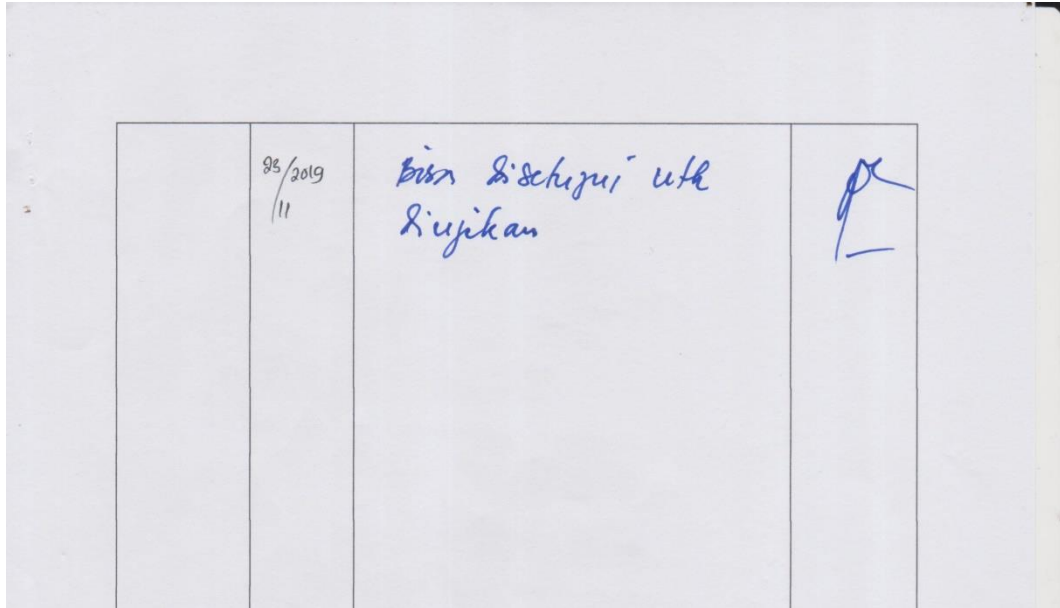 23/2019
11
Bisa disetujui utk
diujikan